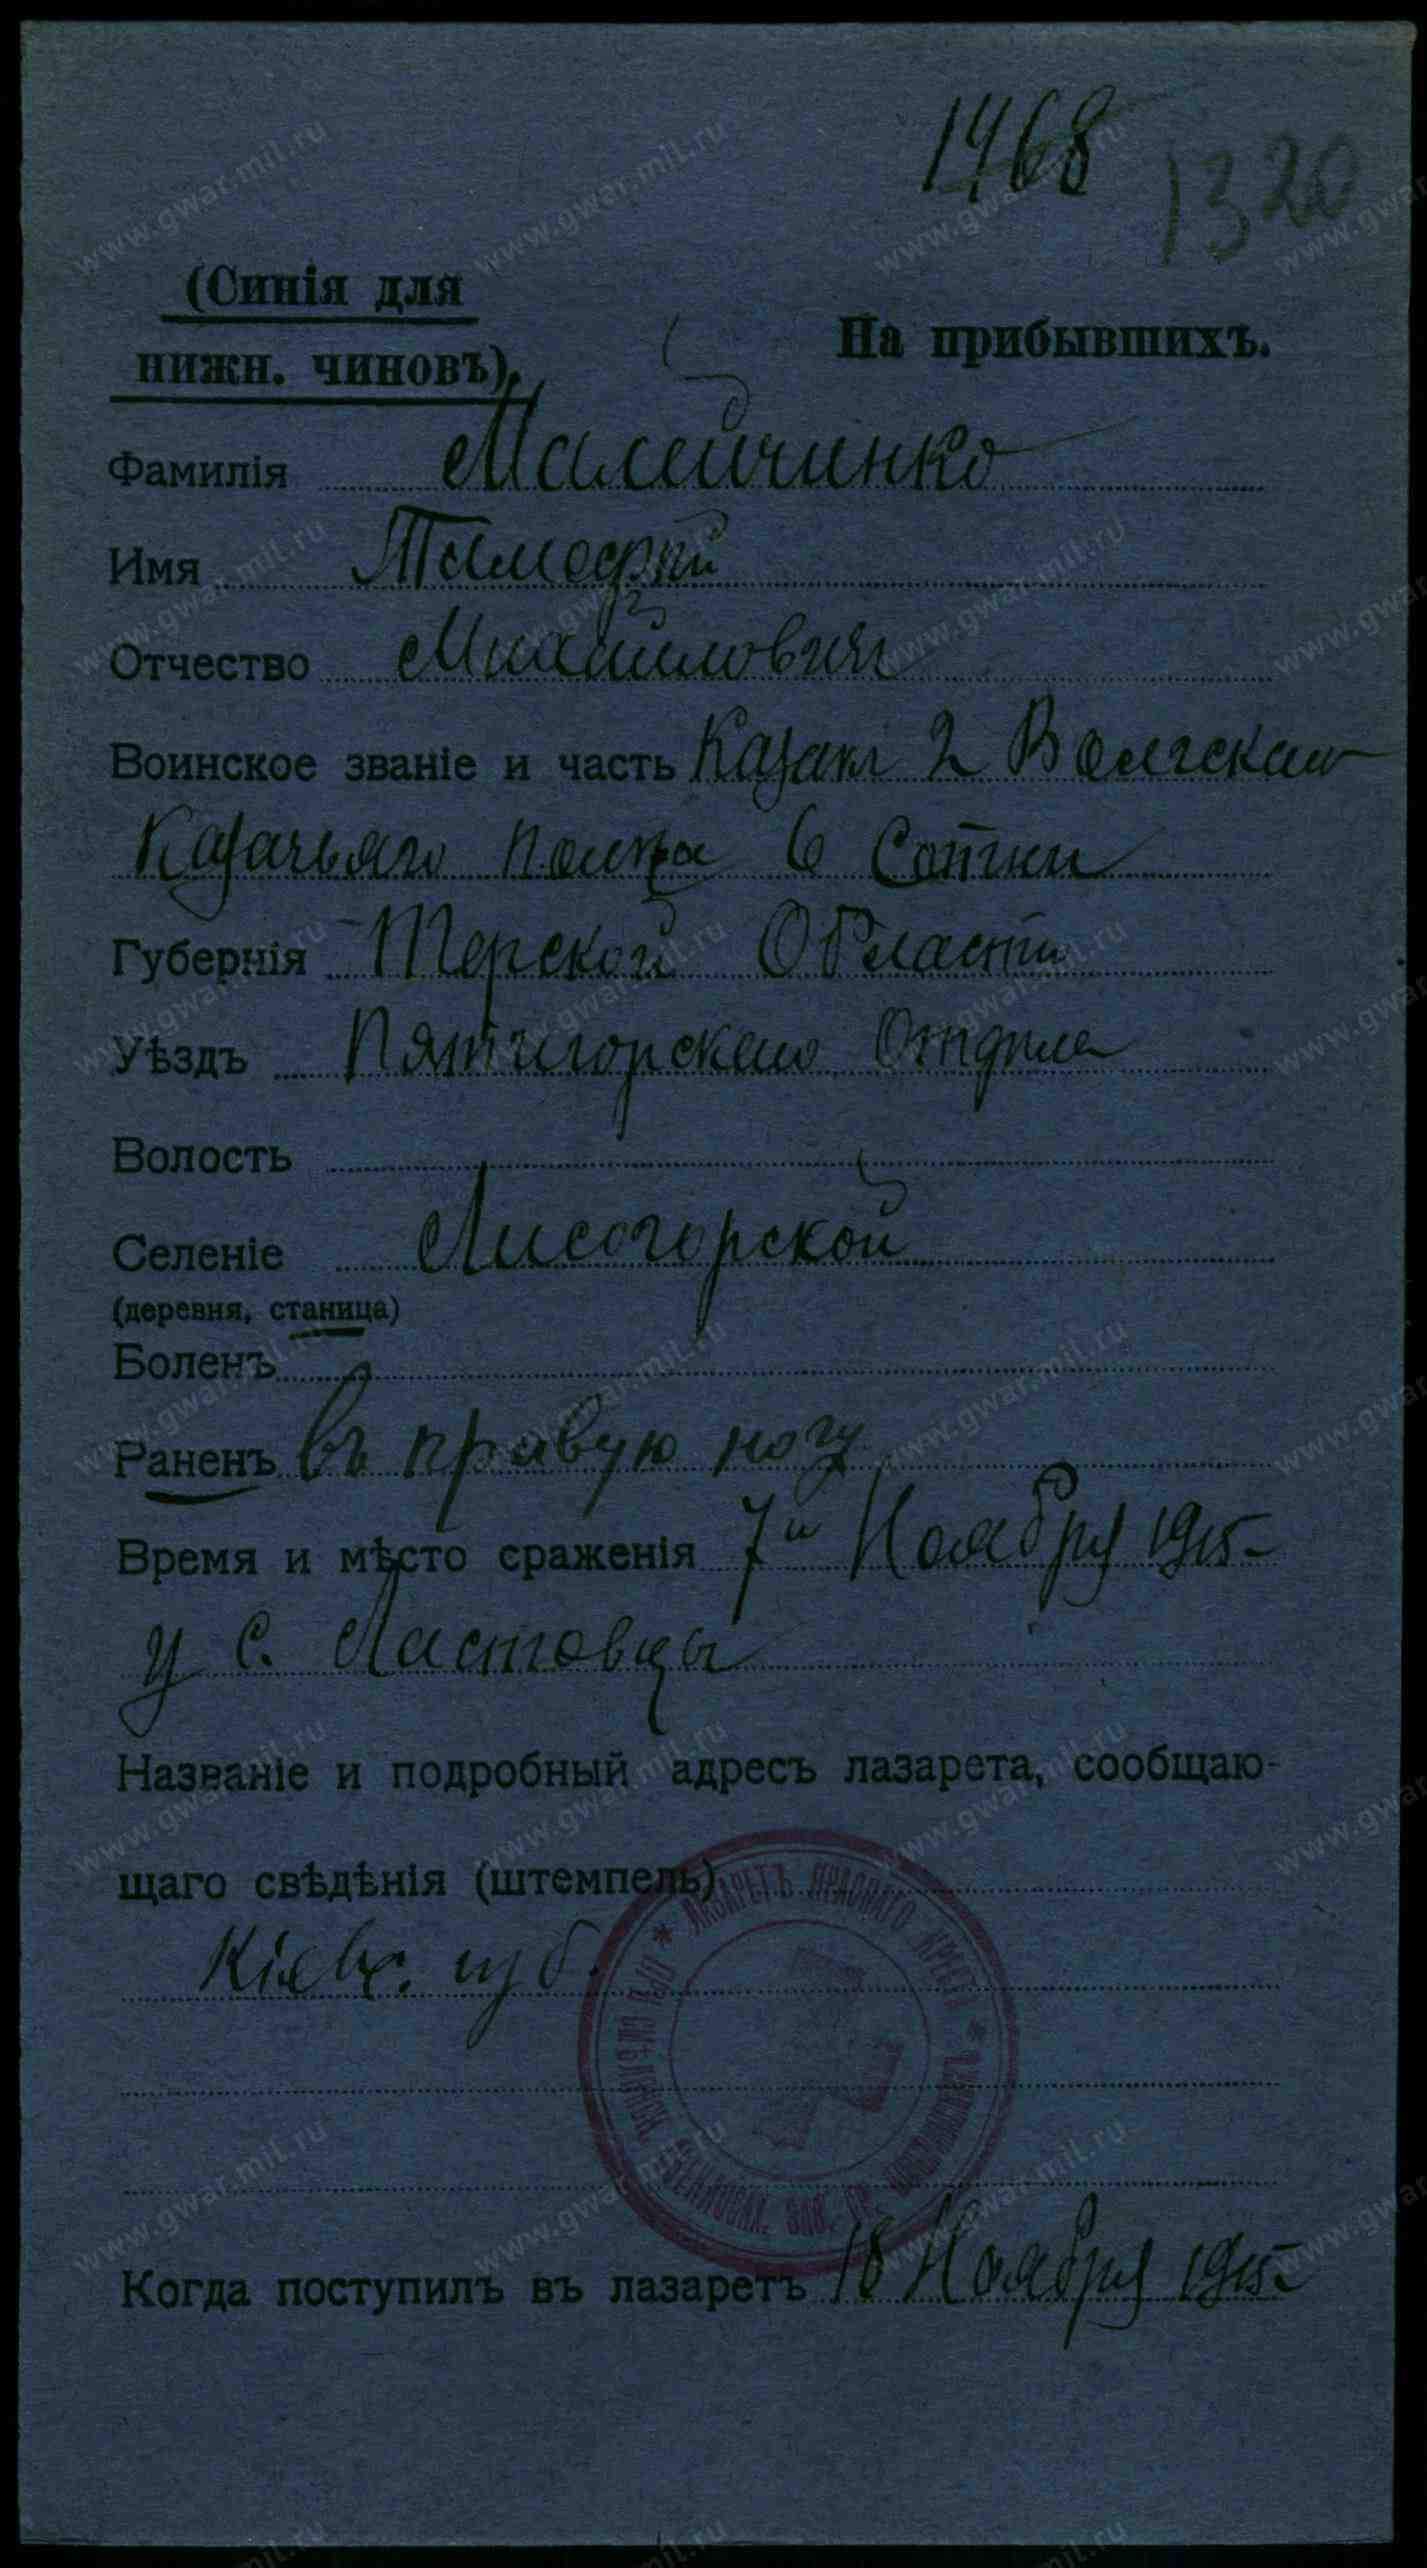 1468 1320
(Синія для
нижн. чиновъ).
На прибывшихъ.
Фамилія Малейчинко
Имя Тимофѣй
Отчество Михайловичъ
Воинское званіе и часть Казакъ 2 Волгскаго
Казачьяго полка 6 Сотни
Губернія Терской Области
Уѣздъ Пятигорскаго Отдѣла
Волость
Селеніе Лисогорской
(деревня, станица)
Боленъ
Раненъ въ правую ногу
Время и мѣсто сраженія 7го Ноября 1915
у с. Ластовцы
Названіе и подробный адресъ лазарета, сообщаю-
щаго свѣдѣнія (штемпель)
Кіевс. губ.
ЛАЗАРЕТЪ КРАСНАГО КРЕСТА
ПРИ СМѢЛЯН
Когда поступилъ въ лазаретъ 18 Ноября 1915
www.gwar.mil.ru